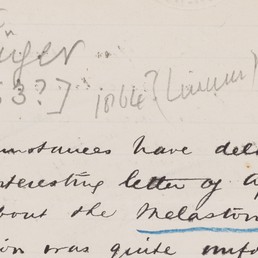 3?] 1864? (Linum)
umstances have del
nteresting letter of A
bout the Melaston
ion was quite unfo